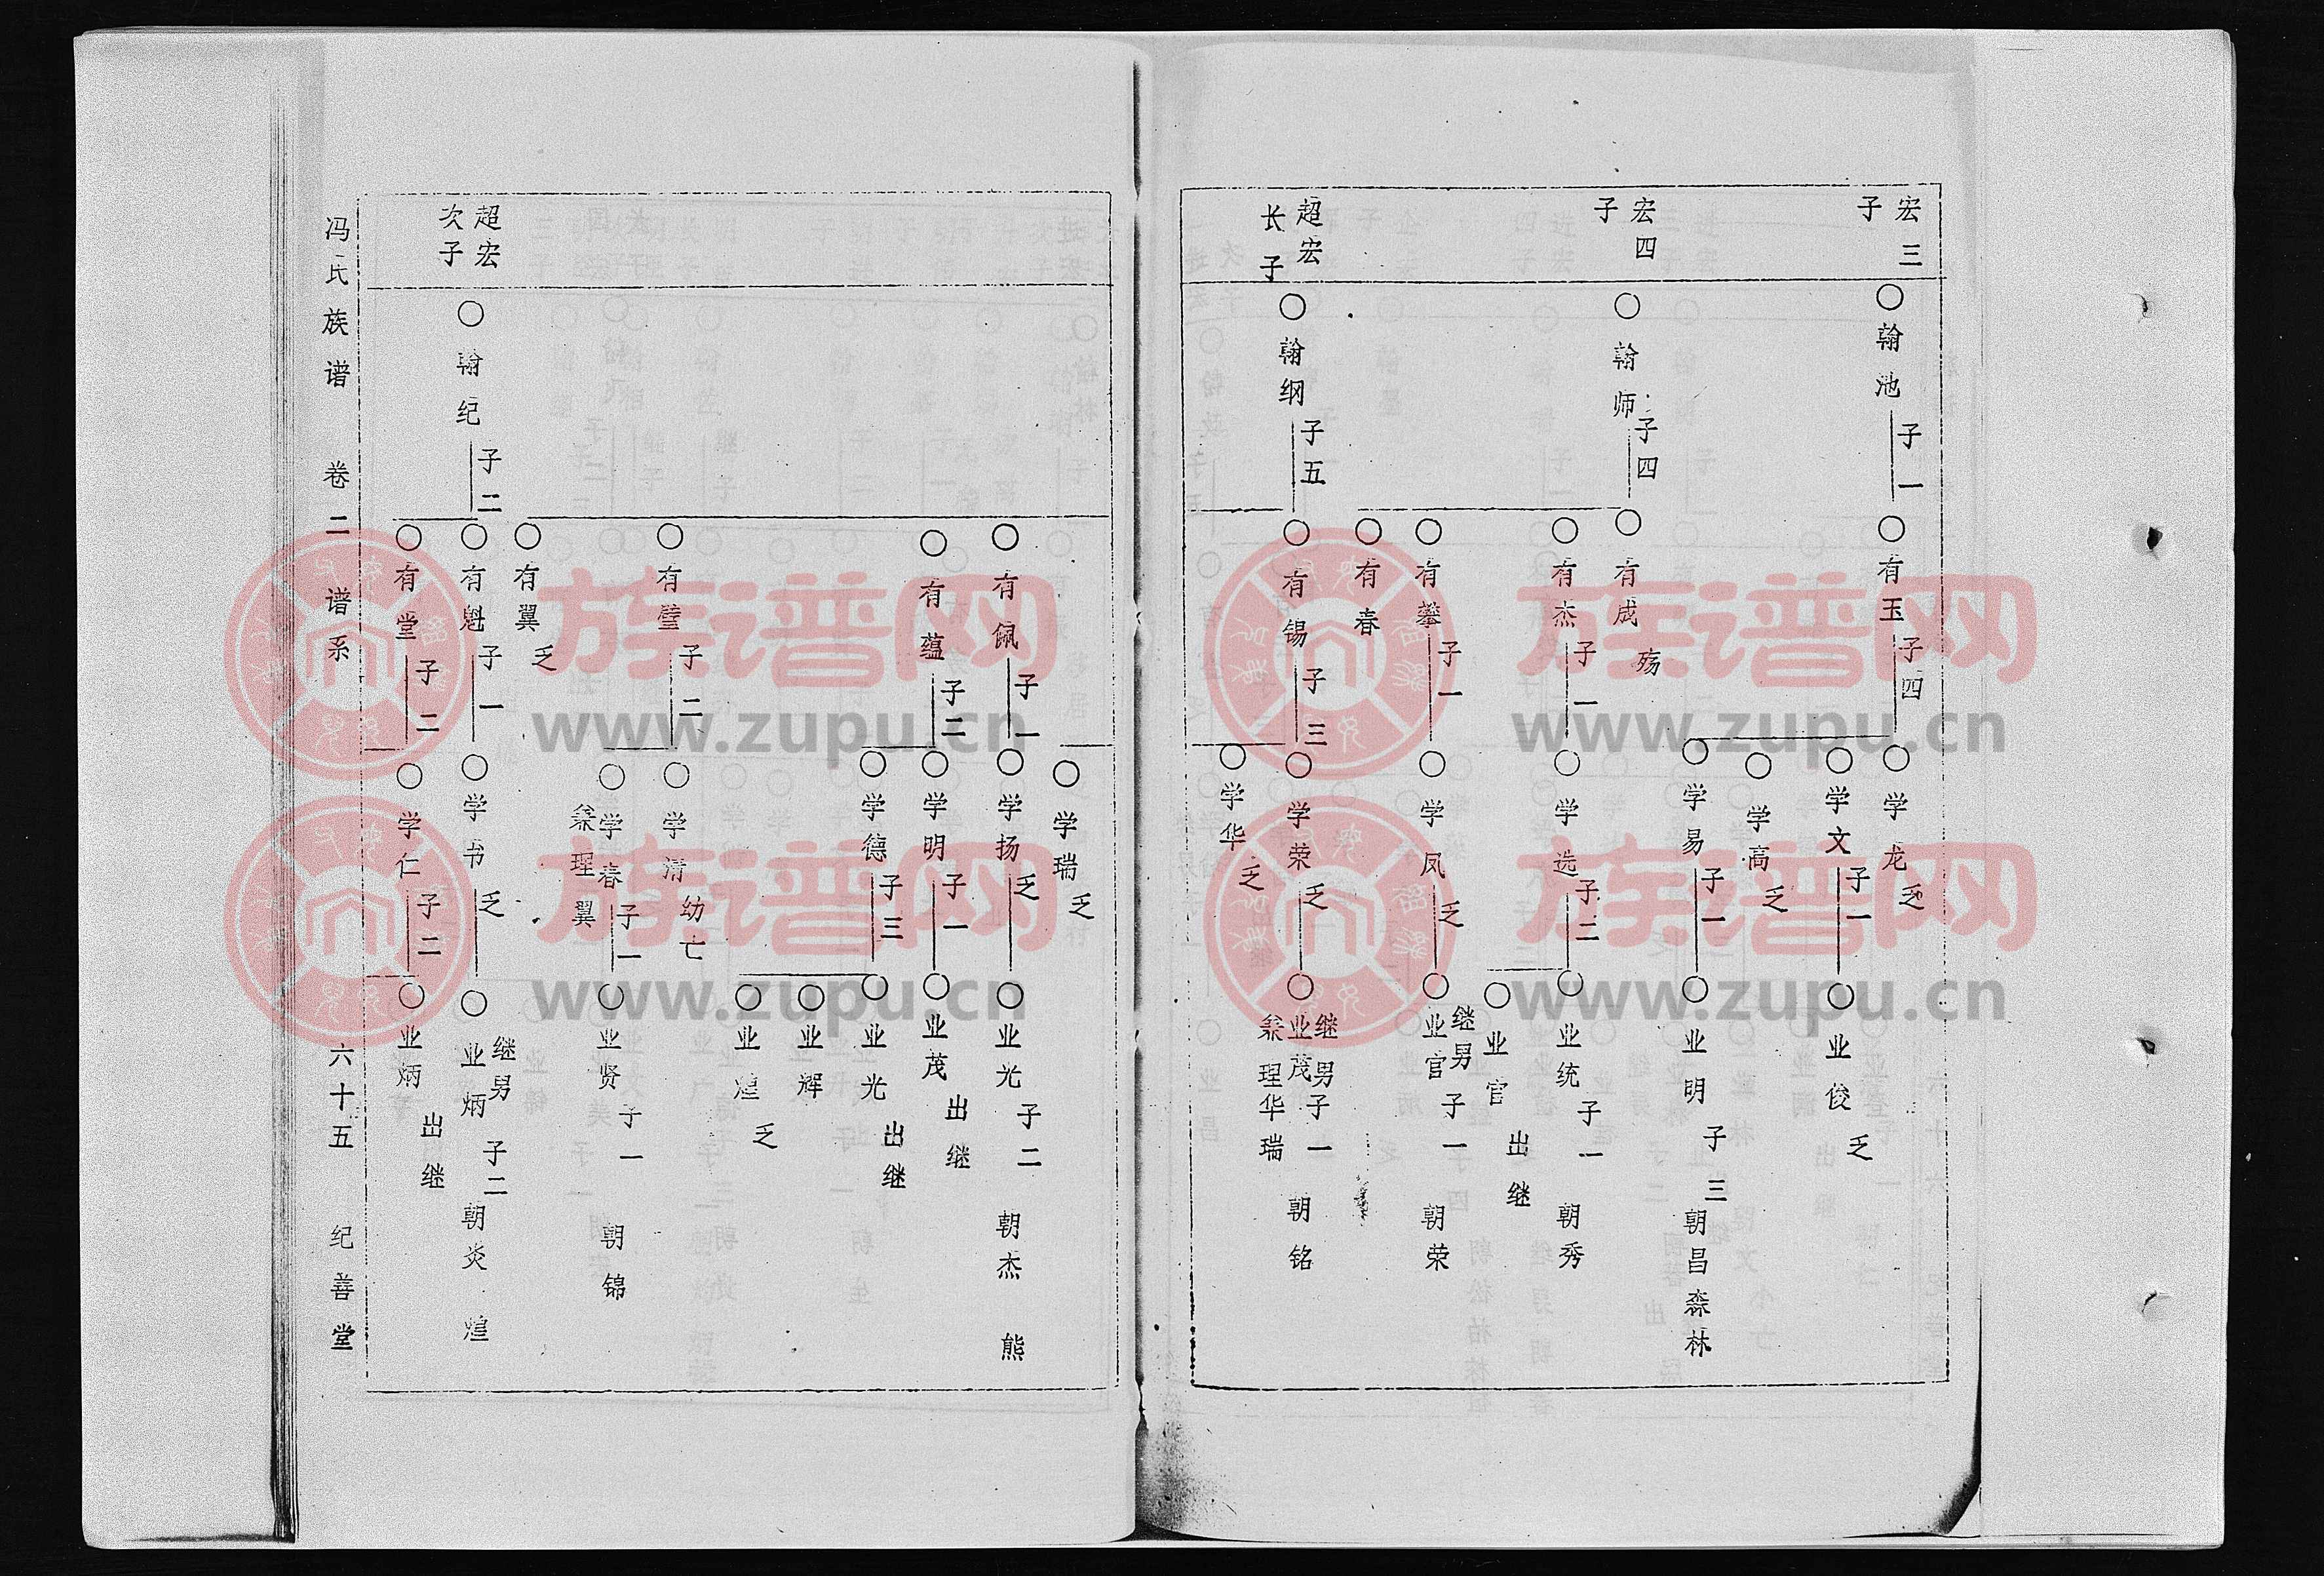 宏三
子
翰池
子一
有玉
子四
学龙
乏
学文
子一
业俊
乏
学高
乏
学易
子一
业明
子三
朝昌森林
宏四
子
翰师
子四
有成
殇
有杰
子一
学选
子二
业统
子一
朝秀
业官
出继
有攀
子一
学凤
乏
继男
业官
子一
朝荣
有春
超宏
长子
翰纲
子五
有锡
子三
学荣
乏
继男
业茂
子一
朝铭
理华瑞
学华
乏
学瑞
乏
有佩
子一
学扬
乏
业光
子二
朝杰
熊
有蕴
子二
学明
子一
业茂
出继
学德
子三
业光
出继
业辉
业煌
乏
有璧
子二
学清
幼亡
学春
子一
理翼
业贤
子一
朝锦
有翼
乏
超宏
次子
翰纪
子二
有魁
子一
学书
乏
继男
业炳
子二
朝炎
煌
有堂
子二
学仁
子二
业炳
出继
冯氏族谱 卷二 谱系 六十五 纪善堂
族谱网
www.zupu.cn
族谱网
www.zupu.cn
族谱网
www.zupu.cn
族谱网
www.zupu.cn